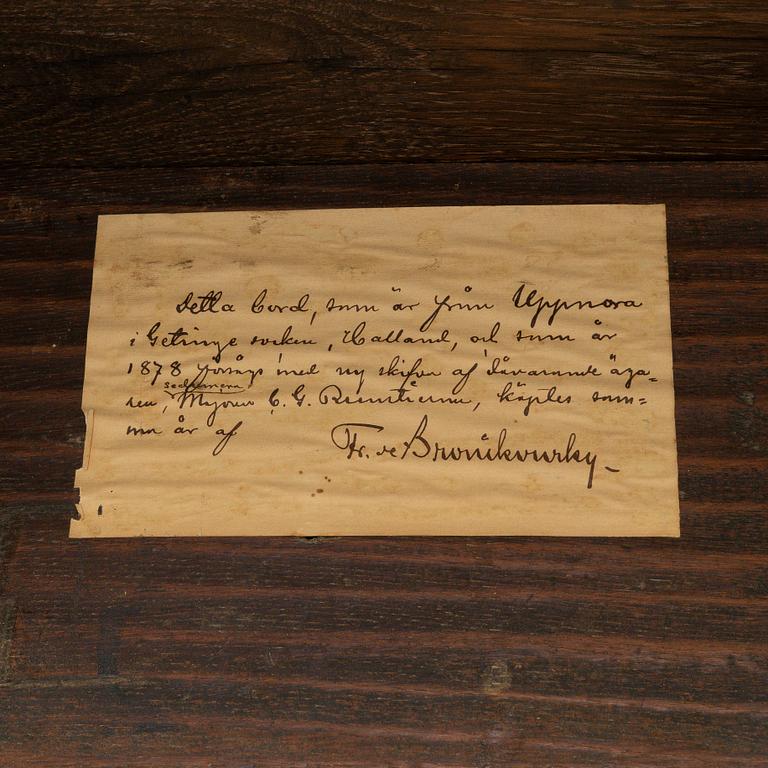 Detta bord, som är från Uppnora
i Getinge socken, Halland, och som år
1878 försågs med ny skifva af dåvarande äga-
ren, sedermera Majoren C. G. köptes sam=
ma år af
Fr. de Bronikowsky